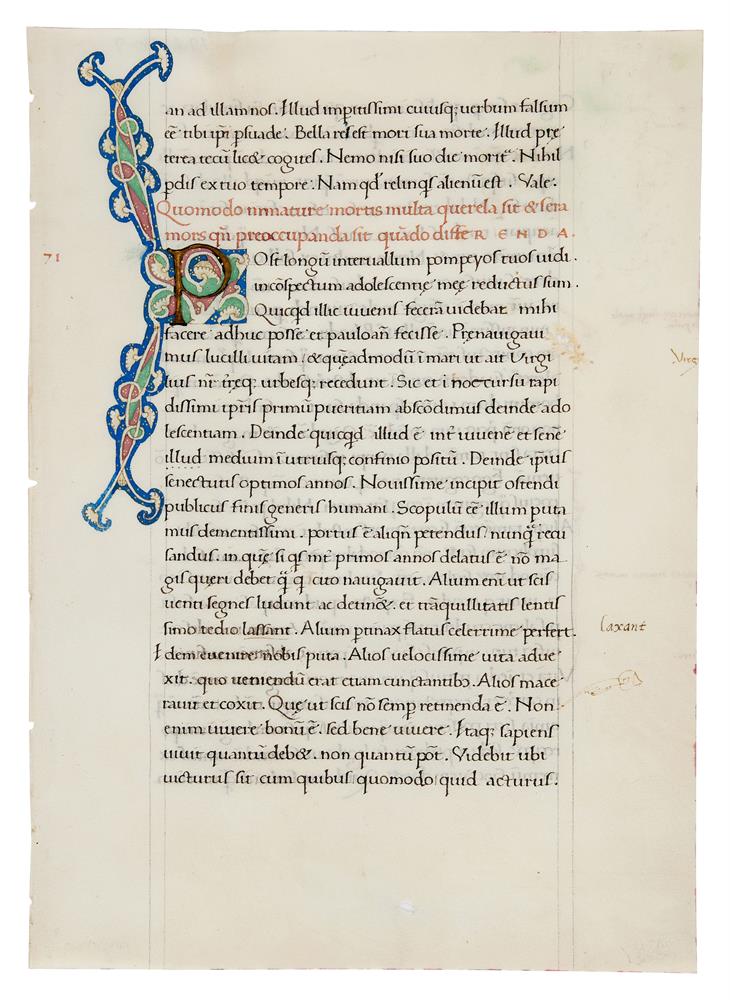 an ad illam nos. Illud imp̄itissimi cuiusq; uerbum falsum
cē tibi ip̄i p̱suade. Bella res est mori sua morte. Illud pre
terea tecū lic& cogites. Nemo nisi suo die morit᷑. Nihil
p̱dis ex tuo tempore. Nam qd̄ relinq̄s alienū est. Vale.
Quomodo inmature mortis multa querela sit & sera
mors qn̄ preoccupanda sit quādo diffeRENDA.
71
POst longū interuallum pompeyos tuos uidi.
in cōspectum adolescentię męę reductus sum.
Quicqd illic iuuenis fecerā uidebar mihi
facere adhuc posse et pauloan̄ fecisse. Prenauigaui
mus lucilli uitam. & quęadmodū ī mari ut ait Virgi
Virg
lius nr̄ tr̄ęq; urbesq; recedunt. Sic et ī hoc cursu rapi
dissimi ip̄ris primū pueritiam abscōdimus deinde ado
lescentiam. Deinde quicqd illud ē int̄ iuuenē et senē
illud medium ī utriusq; confinio positū. Deinde ip̄ius
senectutis optimos annos. Nouissime incipit ostendi
publicus finis generis humani. Scopulū cē illum puta
mus dementissimi. portus ē aliqn̄ petendus nunq̄ recu
sandus. in quę si qs int̄ primos annos delatus ē nō ma
gis queri debet q̄ q cito nauigauit. Alium eni ut scis
uenti segnes ludunt ac detin&. et trāquillitatis lentis
simo tedio lassant. Alium p̱tinax flatus celerrime perfert.
laxant
Idem euenire nobis puta. Alios velocissime uita addue
xit. quo ueniendū erat etiam cunctantibɔ. Alios mace
rauit et coxit. Quę ut scis nō semp̱ retinenda ē. Non
enim uiuere bonū ē. sed bene uiuere. Itaq; sapiens
uiuit quantū deb&. non quantū pōt. Videbit ubi
uicturus sit cum quibus quomodo quid acturus.